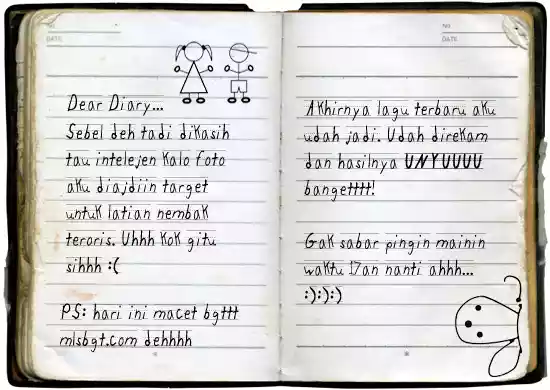 NO
DATE
Dear Diary...
Sebel deh tadi dikasih
tau intelejen kalo foto
aku diajdiin target
untuk latian nembak
teroris. Uhhh kok gitu
sihhh :(
PS: hari ini macet bgttt
mlsbgt.com dehhhh
NO
DATE
Akhirnya lagu terbaru aku
udah jadi. Udah direkam
dan hasilnya UNYUUUU
bangetttt!
Gak sabar pingin mainin
waktu 17an nanti ahhh...
:):):)